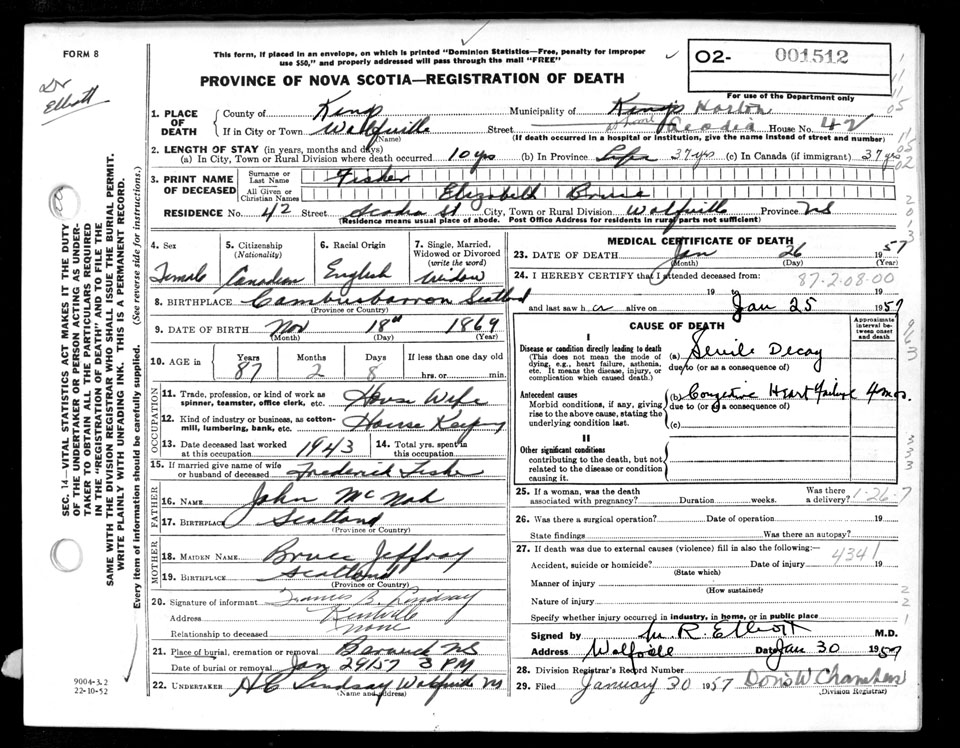 FORM 8
Dr
Elliott
This form, if placed in an envelope, on which is printed "Dominion Statistics—Free, penalty for improper
use $50," and properly addressed will pass through the mail "FREE"
02- 001512
For use of the Department only
PROVINCE OF NOVA SCOTIA—REGISTRATION OF DEATH
1. PLACE OF DEATH
County of Kings Municipality of Kings Horton
If in City or Town Wolfville Street Acadia House No. 42
(Name) (If death occurred in a hospital or institution, give the name instead of street and number)
2. LENGTH OF STAY (in years, months and days)
(a) In City, Town or Rural Division where death occurred 10 yrs (b) In Province Life 37 yrs (c) In Canada (if immigrant) 37 yrs
3. PRINT NAME OF DECEASED
Surname or Last Name Fisher
All Given or Christian Names Elizabeth Bruce
RESIDENCE No. 42 Street Acadia St City, Town or Rural Division Wolfville Province NS
(Residence means usual place of abode. Post Office Address for residents in rural parts not sufficient)
4. Sex
Female
5. Citizenship
(Nationality)
Canadian
6. Racial Origin
English
7. Single, Married, Widowed or Divorced
(write the word)
Widow
8. BIRTHPLACE Cambusbarron Scotland
(Province or Country)
9. DATE OF BIRTH Nov 18th 1869
(Month) (Day) (Year)
10. AGE in Years Months Days If less than one day old
87 2 8 hrs. or min.
OCCUPATION
11. Trade, profession, or kind of work as spinner, teamster, office clerk, etc. House Wife
12. Kind of industry or business, as cotton-mill, lumbering, bank, etc. House Keeping
13. Date deceased last worked at this occupation 1943
14. Total yrs. spent in this occupation
15. If married give name of wife or husband of deceased Frederick Fisher
FATHER
16. NAME John McNab
17. BIRTHPLACE Scotland
(Province or Country)
MOTHER
18. MAIDEN NAME Bruce Jeffray
19. BIRTHPLACE Scotland
(Province or Country)
20. Signature of informant Frances B. Lindsay
Address Kentville
Relationship to deceased none
21. Place of burial, cremation or removal Berwick NS
Date of burial or removal Jan 29/57 3 PM
22. UNDERTAKER H C Lindsay Wolfville NS
(Name and address)
MEDICAL CERTIFICATE OF DEATH
23. DATE OF DEATH Jan 26 1957
(Month) (Day) (Year)
24. I HEREBY CERTIFY that I attended deceased from:
87-2-08-00
19 to 19
and last saw her alive on Jan 25 1957
CAUSE OF DEATH
Approximate interval between onset and death
I
Disease or condition directly leading to death
(This does not mean the mode of dying, e.g., heart failure, asthenia, etc. It means the disease, injury, or complication which caused death.)
(a) Senile Decay
due to (or as a consequence of)
Antecedent causes
Morbid conditions, if any, giving rise to the above cause, stating the underlying condition last.
(b) Congestive Heart Failure 4 mos.
due to (or as a consequence of)
(c)
II
Other significant conditions
contributing to the death, but not related to the disease or condition causing it.
25. If a woman, was the death associated with pregnancy? Duration weeks. Was there a delivery?
1-26-7
26. Was there a surgical operation? Date of operation 19
State findings Was there an autopsy?
27. If death was due to external causes (violence) fill in also the following:—
4341
Accident, suicide or homicide? Date of injury 19
(State which)
Manner of injury
(How sustained)
Nature of injury
Specify whether injury occurred in industry, in home, or in public place
Signed by M. R. Elliott M.D.
Address Wolfville Date Jan 30 1957
28. Division Registrar's Record Number
29. Filed January 30 1957 Doris W Chambers
(Division Registrar)
SEC. 14—VITAL STATISTICS ACT MAKES IT THE DUTY
OF THE UNDERTAKER OR PERSON ACTING AS UNDER-
TAKER TO OBTAIN ALL THE PARTICULARS REQUIRED
IN THE "REGISTRATION OF DEATH" AND TO FILE THE
SAME WITH THE DIVISION REGISTRAR WHO SHALL ISSUE THE BURIAL PERMIT.
WRITE PLAINLY WITH UNFADING INK. THIS IS A PERMANENT RECORD.
Every item of information should be carefully supplied. (See reverse side for instructions.)
9004-3.2
22-10-52